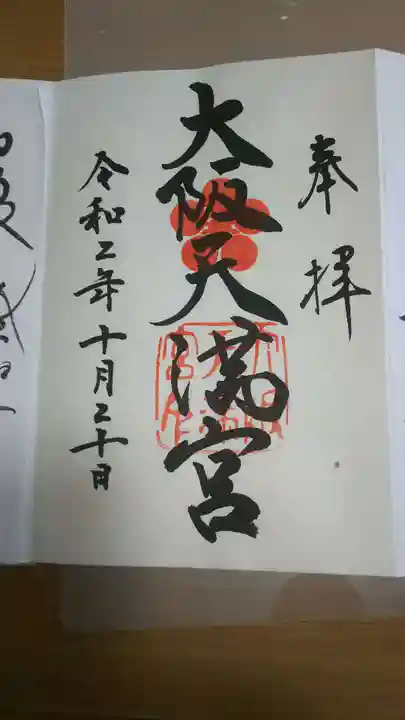 奉拝
大阪天満宮
令和二年十月二十日